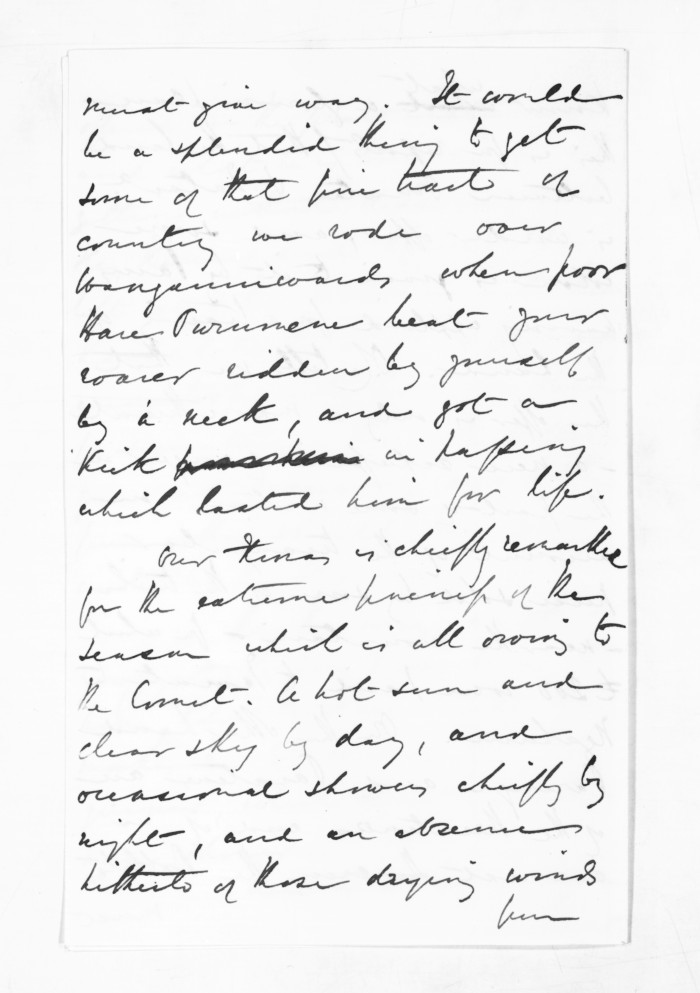 must give way. It would
be a splendid thing to get
some of that fine tract of
country we rode over
Wanganuiwards when poor
Hare Purumene beat your
roarer ridden by yourself
by a neck, and got a
kick in passing
which lasted him for life.
Our Xmas is chiefly remarkable
for the extreme fineness of the
season which is all owing to
the Comet. A hot sun and
clear sky by day, and
occasional showers chiefly by
night, and an absence
hitherto of those drying winds